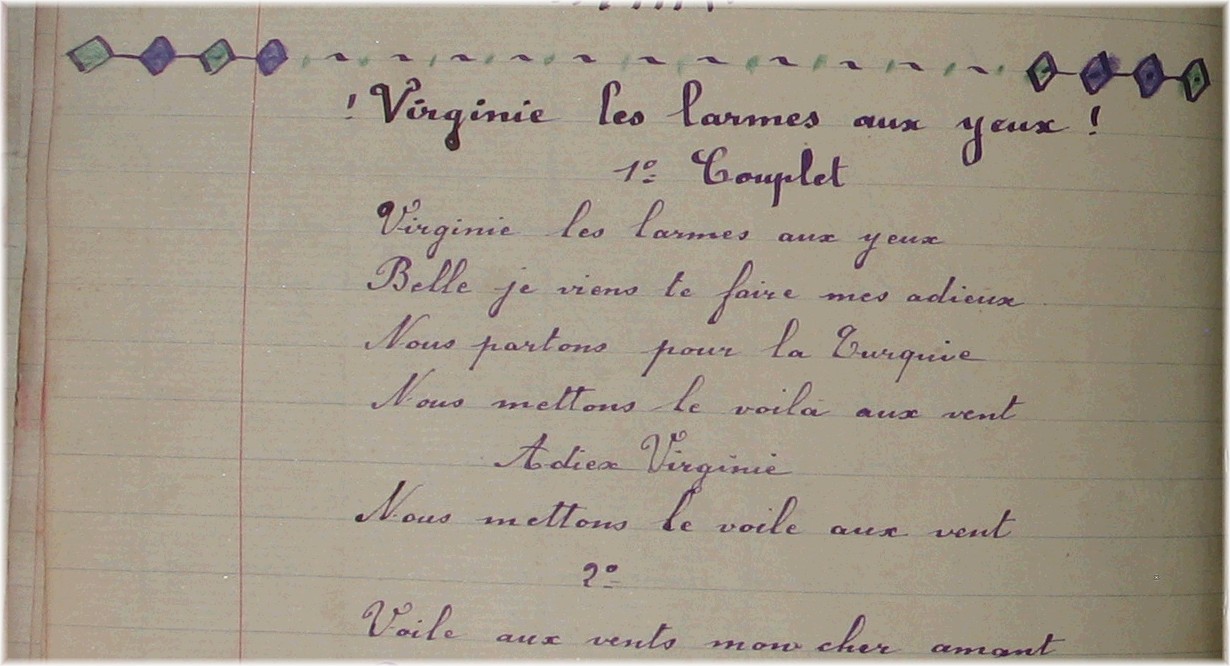 ! Virginie les larmes aux yeux !
1º Couplet
Virginie les larmes aux yeux
Belle je viens te faire mes adieux
Nous partons pour la Turquie
Nous mettons le voilà aux vent
Adiex Virginie
Nous mettons le voile aux vent
2º
Voile aux vents mon cher amant